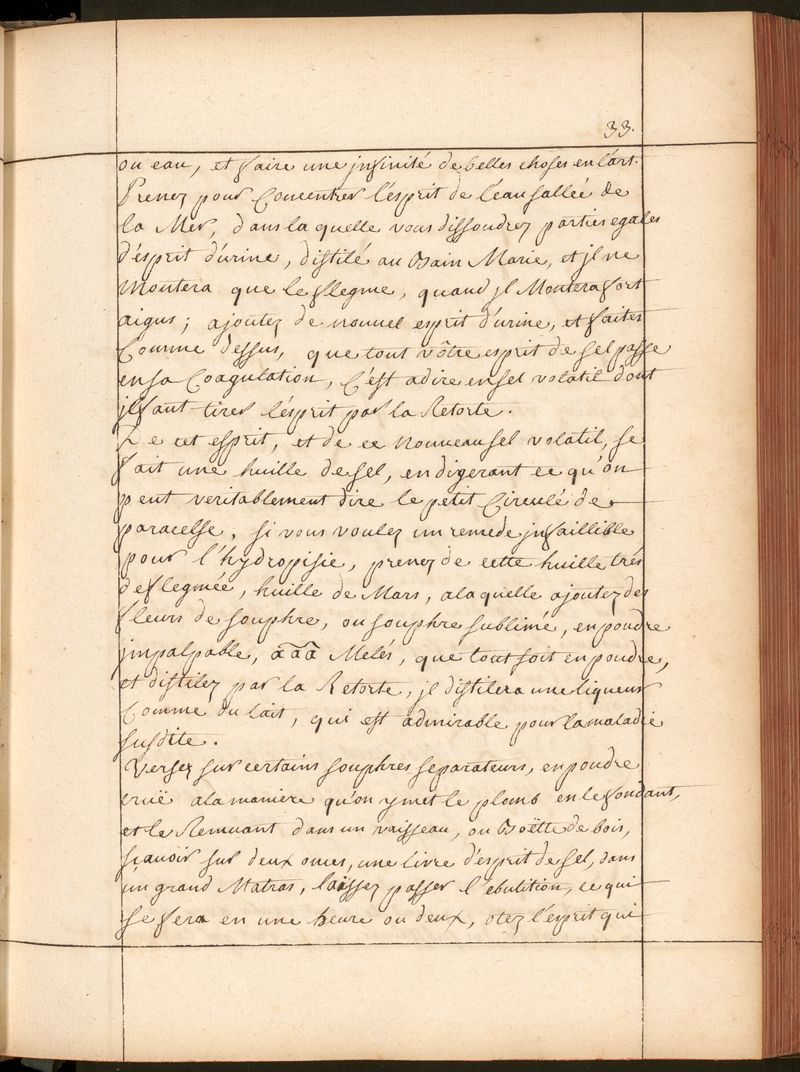 33.
ou eau, et faire une jnfinité de belles choses en l'art.
Prenez pour Concentrer l'esprit de l'eau sallée de
la Mer, dans la quelle vous dissoudrez parties egales
d'ésprit d'urine, distilé au Bain Marie, et jl ne
Montera que le flegme, quand jl Montera fort
aigus; ajoutez de nouvel esprit d'urine, et faites
Comme dessus, que tout vôtre esprit de sel passe
en sa Coagulation, C'est adire en sel volatil dont
jl faut tirer l'ésprit par la Retorte.
De cet esprit, et de ce nouveau sel volatil, se
fait une huille de sel, en digerant ce qu'on
peut veritablement dire le petit Circulé de
paracelse, si vous voulez un remede jnfaillible
pour l'hydropisie, prenez de cette huille trés
deflegmée, huille de Mars, a laquelle ajoutez des
fleurs de souphre, ou souphre sublimé, en poudre
jmpalpable, ãããa Melés, que tout soit en poudre,
et distilez par la Retorte, jl distilera une liqueur
Comme du lait, qui est admirable pour la maladie
susdite.
Versez sur certains souphres separateurs, en poudre
cruë a la maniere qu'on y met le plomb en le fondant,
et le Remuant dans un vaisseau, ou Boëtte de bois,
scavoir sur deux onces, une livre d'esprit de sel, dans
un grand Matras, laissez passer l'ebulition, ce qui
se fera en une heure ou deux, otez l'esprit qui